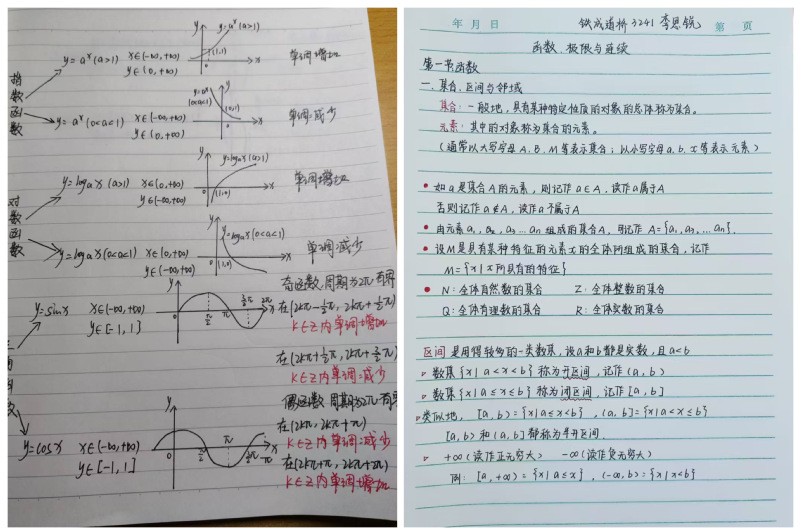 y=aˣ(a>1)
y=aˣ(a>1) x∈(-∞,+∞)
y∈(0,+∞)
(1,1)
单调增加
指数函数
y=aˣ
(0<a<1)
(0,1)
y=aˣ(0<a<1) x∈(-∞,+∞)
y∈(0,+∞)
单调减少
y=logₐx(a>1)
y=logₐx(a>1) x∈(0,+∞)
y∈(-∞,+∞)
(1,0)
单调增加
对数函数
y=logₐx(0<a<1)
y=logₐx(0<a<1) x∈(0,+∞)
y∈(-∞,+∞)
(1,0)
单调减少
奇函数 周期为2π 有界
y=sinx x∈(-∞,+∞)
y∈[-1,1]
在(2kπ-½π, 2kπ+½π)
k∈Z内单调增加
在(2kπ+½π, 2kπ+3/2π)
k∈Z内单调减少
偶函数 周期为2π 有界
在(2kπ, 2kπ+π)
y=cosx x∈(-∞,+∞)
y∈[-1,1]
k∈Z内单调减少
在(2kπ+π, 2kπ+2π)
k∈Z内单调增加
年 月 日 铁成道桥3241 李恩锐 第 页
函数、极限与连续
第一节函数
一.集合、区间与邻域
集合:一般地,具有某种特定性质的对象的总体称为集合。
元素:其中的对象称为集合的元素。
(通常以大写字母A、B、M等表示集合;以小写字母a、b、x等表示元素)
• 如a是集合A的元素,则记作a∈A,读作a属于A
否则记作a∉A,读作a不属于A
• 由元素a₁,a₂,a₃…aₙ组成的集合A,可记作A={a₁,a₂,…aₙ}.
• 设M是具有某种特征的元素x的全体所组成的集合,记作
M={x|x所具有的特征}
• N:全体自然数的集合 Z:全体整数的集合
Q:全体有理数的集合 R:全体实数的集合
区间是用得较多的一类数集,设a和b都是实数,且a<b
▹ 数集{x|a<x<b}称为开区间,记作(a,b)
▹ 数集{x|a≤x≤b}称为闭区间,记作[a,b]
▹ 类似地,[a,b)={x|a≤x<b},(a,b]={x|a<x≤b}
[a,b)和(a,b]都称为半开区间.
▹ +∞(读作正无穷大) -∞(读作负无穷大)
例:[a,+∞)={x|a≤x},(-∞,b)={x|x<b}